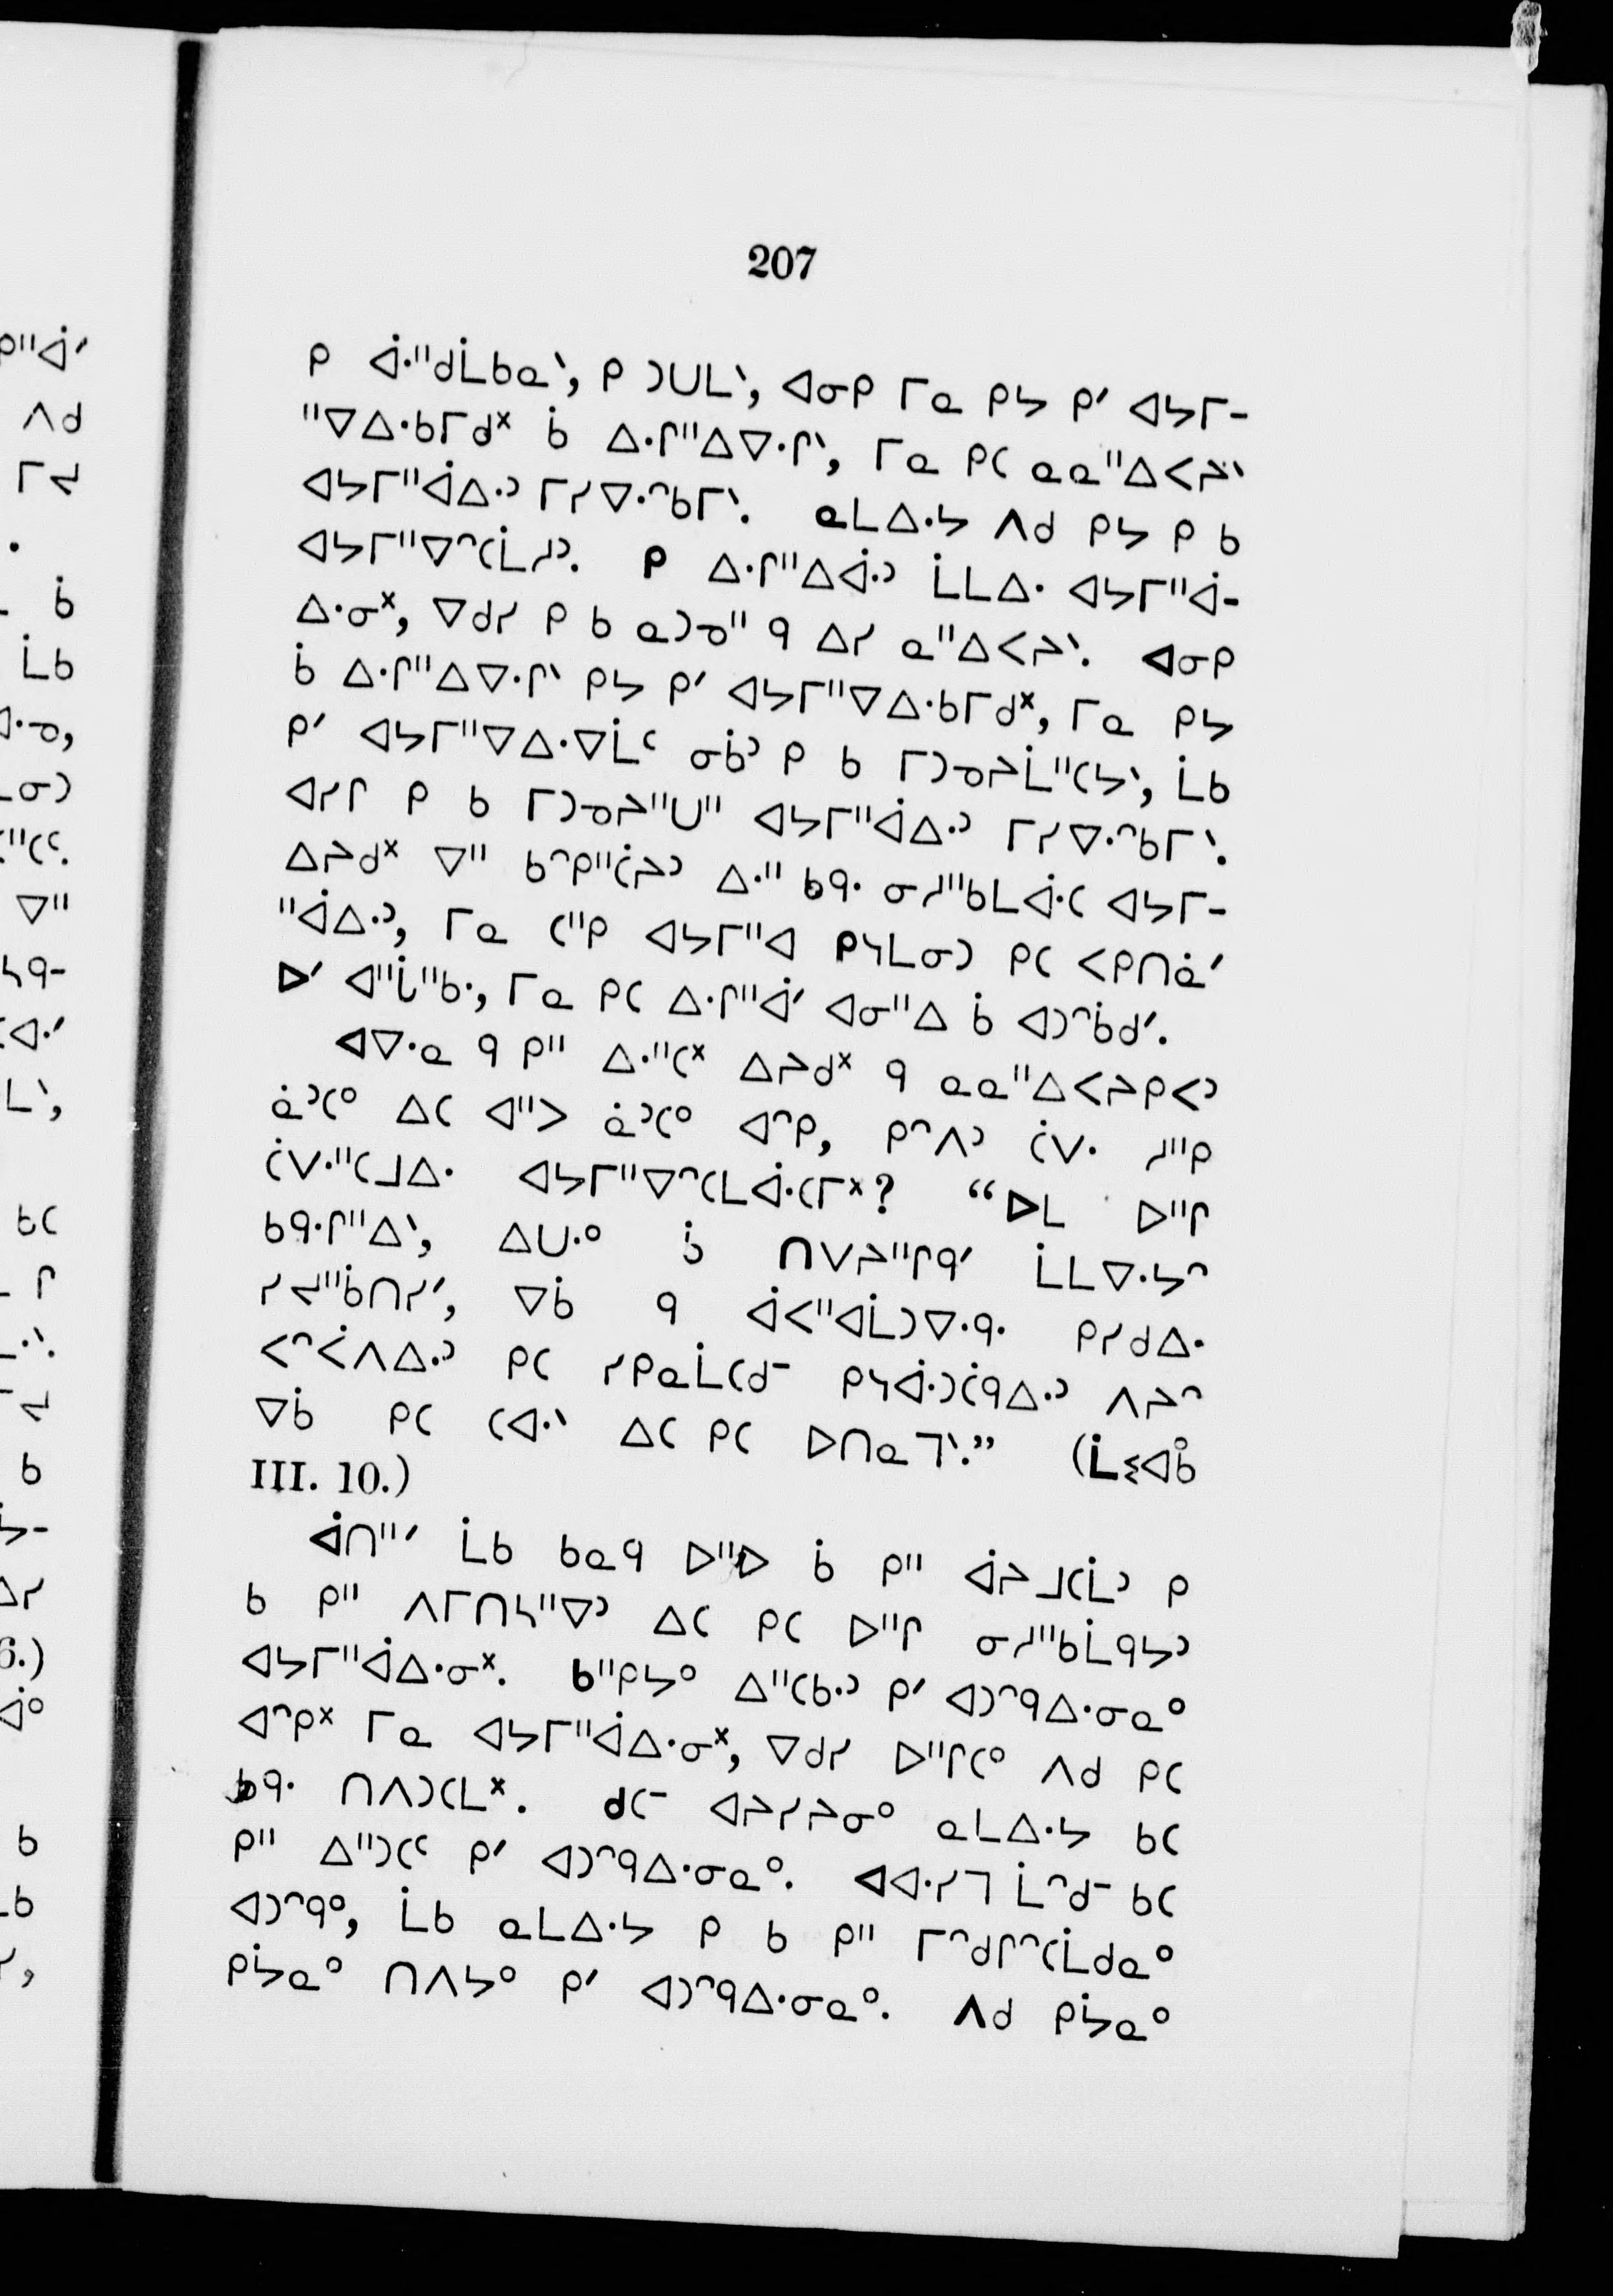 207
ᑭ ᐚᐦᑯᒫᑲᓇᐠ, ᑭ ᑐᑌᒪᐠ, ᐊᓂᑭ ᒥᓇ ᑭᔭ ᑭᐟ ᐊᔭᒥ-
ᐦᐁᐏᑲᒥᑯᕽ ᑳ ᐏᒋᐦᐃᐍᒋᐠ, ᒥᓇ ᑭᑕ ᓇᓇᐦᐃᐸᔨᐠ
ᐊᔭᒥᐦᐋᐏᐣ ᒥᓯᐍᐢᑲᒥᐠ. ᓇᒪᐏᔭ ᐱᑯ ᑭᔭ ᑭ ᑲ
ᐊᔭᒥᐦᐁᐢᑕᒫᓱᐣ. ᑭ ᐏᒋᐦᐃᐚᐣ ᒫᒪᐏ ᐊᔭᒥᐦᐋ-
ᐏᓂᕽ, ᐁᑯᓯ ᑭ ᑲ ᓇᑐᓀᐦ ᑫ ᐃᓯ ᓇᐦᐃᐸᔨᐠ. ᐊᓂᑭ
ᑳ ᐏᒋᐦᐃᐍᒋᐠ ᑭᔭ ᑭᐟ ᐊᔭᒥᐦᐁᐏᑲᒥᑯᕽ, ᒥᓇ ᑭᔭ
ᑭᐟ ᐊᔭᒥᐦᐁᐏᐁᒫᑦ ᓂᑳᐣ ᑭ ᑲ ᒥᑐᓀᔨᒫᐦᑕᔭᐠ, ᒫᑲ
ᐊᓯᒋ ᑭ ᑲ ᒥᑐᓀᔨᐦᑌᐦ ᐊᔭᒥᐦᐋᐏᐣ ᒥᓯᐍᐢᑲᒥᐠ.
ᐃᔨᑯᕽ ᐁᐦ ᑲᐢᑭᐦᑖᔨᐣ ᐏᐦ ᑲᑵ ᓂᓱᐦᑲᒪᐚᑕ ᐊᔭᒥ-
ᐦᐋᐏᐣ, ᒥᓇ ᑕᐦᑭ ᐊᔭᒥᐦᐊ ᑭᓴᒪᓂᑐ ᑭᑕ ᐸᑭᑎᓈᐟ
ᐅᐟ ᐊᐦᒑᐦᑲᐧ, ᒥᓇ ᑭᑕ ᐏᒋᐦᐋᐟ ᐊᓂᐦᐃ ᑳ ᐊᑐᐢᑳᑯᐟ.
ᐊᐍᓇ ᑫ ᑭᐦ ᐏᐦᑕᕽ ᐃᔨᑯᕽ ᑫ ᓇᓇᐦᐃᐸᔨᑭᐸᐣ
ᓈᐣᑕᐤ ᐃᑕ ᐊᐦᐳ ᓈᐣᑕᐤ ᐊᐢᑭ, ᑭᐢᐱᐣ ᑖᐻ ᓱᐦᑭ
ᑖᐻᐦᑕᒧᐏ ᐊᔭᒥᐦᐁᐢᑕᒪᐚᑕᒥᕽ? “ᐅᒪ ᐅᐦᒋ
ᑲᑵᒋᐦᐃᐠ, ᐃᑘᐤ ᑳ ᑎᐯᔨᐦᒋᑫᐟ ᒫᒪᐍᔭᐢ
ᓯᓭᐦᑳᑎᓯᐟ, ᐁᑳ ᑫ ᐋᐸᐦᐊᒫᑐᐍᑵ ᑭᓯᑯᐏ
ᐸᐢᐹᐱᐏᐣ ᑭᑕ ᓯᑭᓇᒫᑕᑯᐨ ᑭᓴᐚᑐᑖᑫᐏᐣ ᐱᔨᐢ
ᐁᑳ ᑭᑕ ᑕᐘᐠ ᐃᑕ ᑭᑕ ᐅᑎᓇᒣᐠ.” (ᒫᓬᐊᑳᐤ
III. 10.)
ᐋᑎᐦᐟ ᒫᑲ ᑲᓇᑫ ᐅᐦᐅ ᑳ ᑭᐦ ᐋᔨᒧᑕᒫᐣ ᑭ
ᑲ ᑭᐦ ᐱᒥᑎᓴᐦᐁᐣ ᐃᑕ ᑭᑕ ᐅᐦᒋ ᓂᓱᐦᑲᒫᑫᔭᐣ
ᐊᔭᒥᐦᐋᐏᓂᕽ. ᑲᐦᑭᔭᐤ ᐃᐦᑕᑲᐧᐣ ᑭᐟ ᐊᑐᐢᑫᐏᓂᓇᐤ
ᐊᐢᑭᕽ ᒥᓇ ᐊᔭᒥᐦᐋᐏᓂᕽ, ᐁᑯᓯ ᐅᐦᒋᑕᐤ ᐱᑯ ᑭᑕ
ᑲᑵ ᑎᐱᑐᑕᒪᕽ. ᑯᑕᐨ ᐊᔨᓯᔨᓂᐤ ᓇᒪᐏᔭ ᑲᑕ
ᑭᐦ ᐃᐦᑐᑕᑦ ᑭᐟ ᐊᑐᐢᑫᐏᓂᓇᐤ. ᐊᐘᓯᒣ ᒫᐢᑯᐨ ᑲᑕ
ᐊᑐᐢᑫᐤ, ᒫᑲ ᓇᒪᐏᔭ ᑭ ᑲ ᑭᐦ ᒥᐢᑯᒋᐢᑕᒫᑯᓇᐤ
ᑭᔮᓇᐤ ᑎᐱᔭᐤ ᑭᐟ ᐊᑐᐢᑫᐏᓂᓇᐤ. ᐱᑯ ᑭᔮᓇᐤ